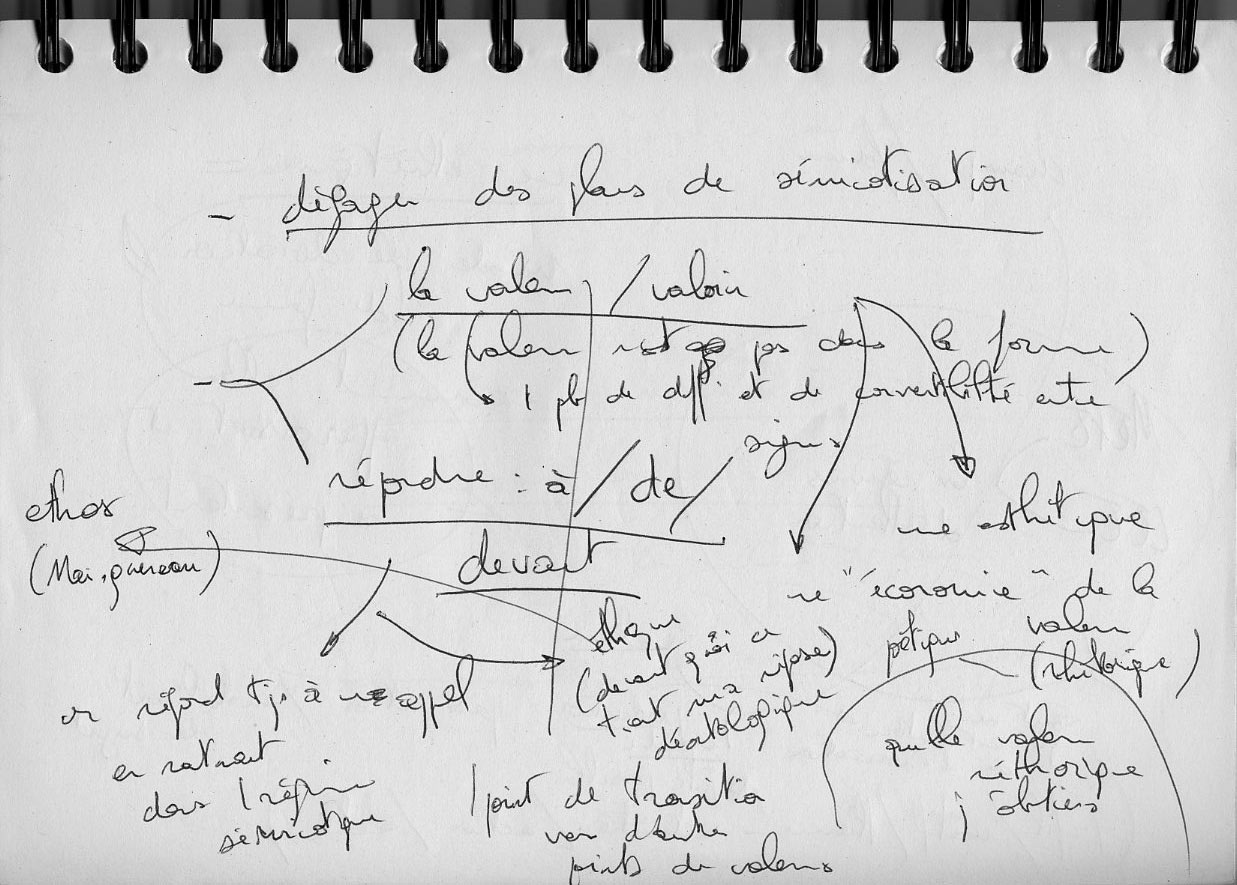 - dégager des plans de sémiotisation
la valeur / valoir
(la valeur n'est pas dans la forme)
1 pb de diff. et de convertibilité entre
signes
- répondre : à / de /
devant
ethos
(Maingueneau)
on répond tjs à un appel
en entrant
dans 1 régime
sémiotique
éthique
(devant quoi
tient ma réponse)
déontologique
1 point de transition
vers d'autres
points de valeurs
une esthétique
une "économie" de la
valeur
(rhétorique)
quelle valeur
réthorique
j'obtiens